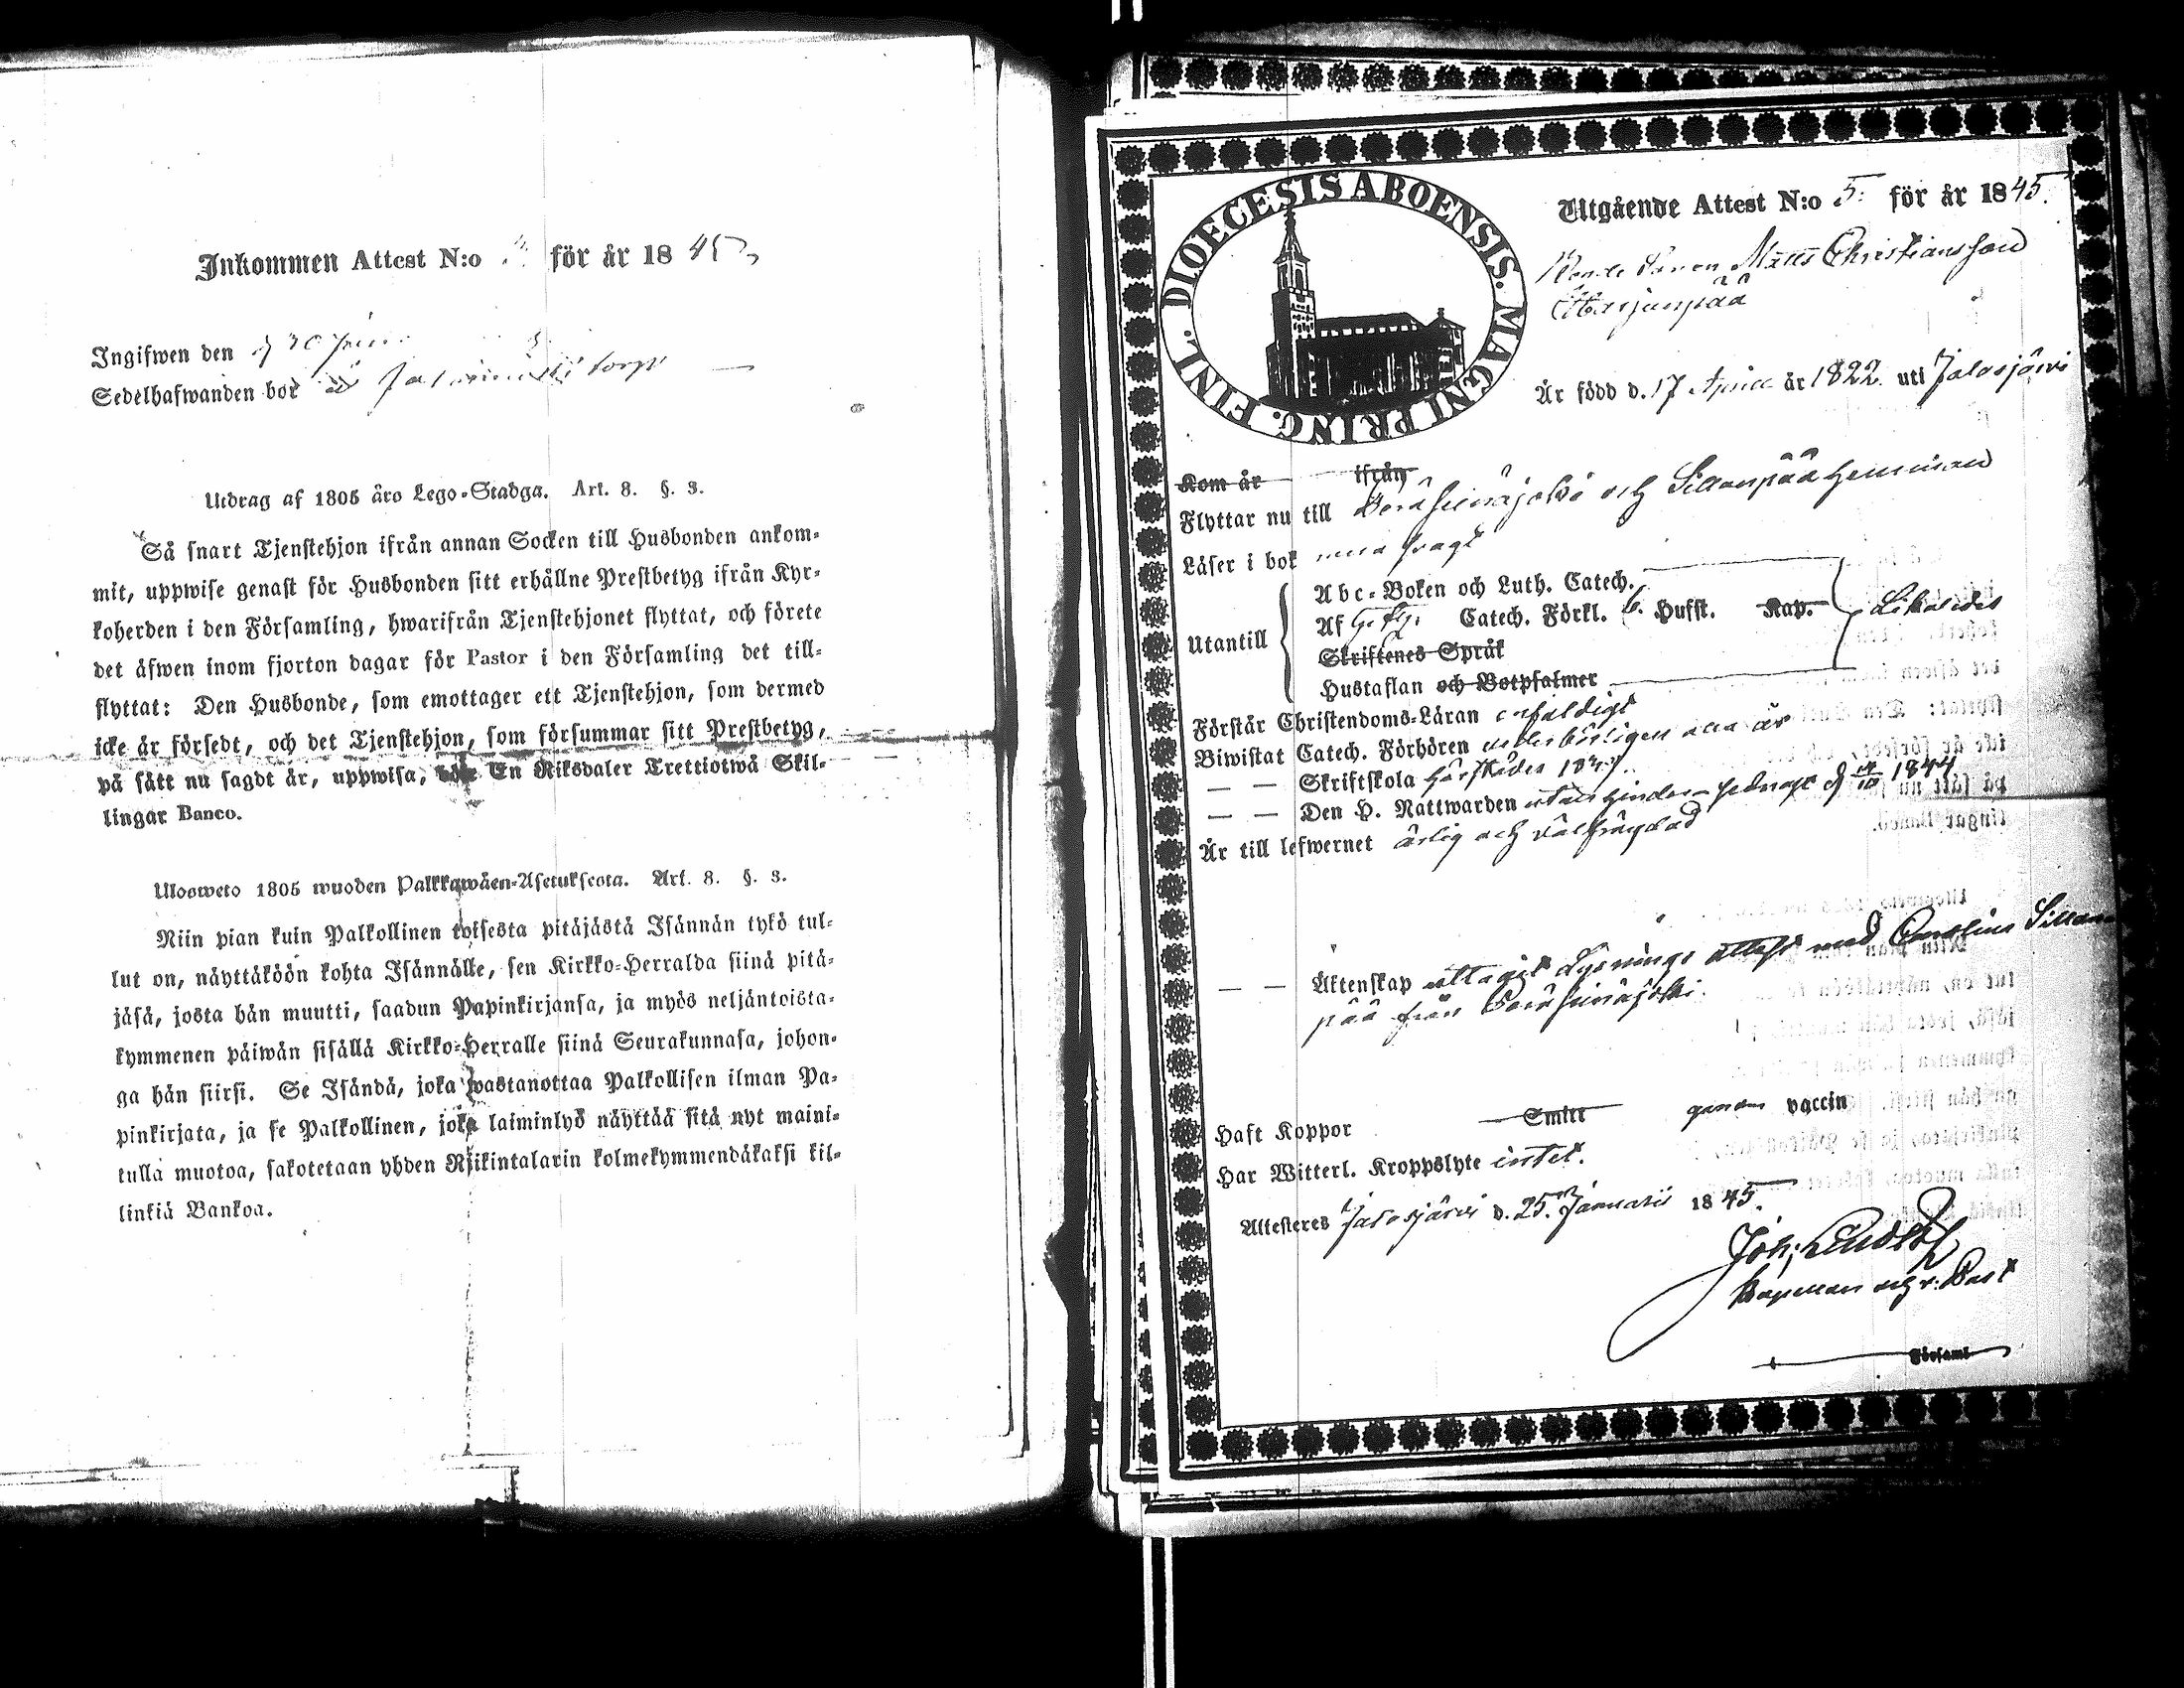 Inkommen Attest N:o för år 1845
Ingifwen den
Sedelhafwanden bor torp
Utdrag af 1805 åro Lego-Stadga. Art. 8. §. 3.
Så snart Tjenstehjon ifrån annan Socken till Husbonden ankom-
mit, uppwise genast för Husbonden sitt erhållne Prestbetyg ifrån Kyr-
koherden i den Församling, hwarifrån Tjenstehjonet flyttat, och förete
det äfwen inom fjorton dagar för Pastor i den Församling det till-
flyttat: Den Husbonde, som emottager ett Tjenstehjon, som dermed
icke är försedt, och det Tjenstehjon, som försummar sitt Prestbetyg,
på sätt nu sagdt är, uppwisa, En Riksdaler Trettiotwå Skil-
lingar Banco.
Ulosweto 1805 wuoden Palkkawäen-Asetuksesta. Art. 8. §. 3.
Niin pian kuin Palkollinen toisesta pitäjästä Isännän tykö tul-
lut on, näyttäköön kohta Isännälle, sen Kirkko-Herralda siinä pitä-
jäsä, josta hän muutti, saadun Papinkirjansa, ja myös neljäntoista-
kymmenen päiwän sisällä Kirkko-Herralle siinä Seurakunnasa, johon-
ga hän siirsi. Se Isändä, joka wastanottaa Palkollisen ilman Pa-
pinkirjata, ja se Palkollinen, joka laiminlyö näyttää sitä nyt maini-
tulla muotoa, sakotetaan yhden Riikintalarin kolmekymmendäkaksi kil-
linkiä Bankoa.
DIOECESIS ABOENSIS. MAGNI PRINC. FINL.
Utgående Attest N:o 5. för år 1845.
Matts Christiansson
Är född d. 17 April år 1822. uti Jalasjärvi
Kom år ifrån
Flyttar nu till Peräseinäjoki och Sillanpää hemman
Läser i bok
Abc-Boken och Luth. Catech.
Utantill
Af Catech. Förkl. Hufst. Kap. Likaledes
Skriftenes Språk
Hustaflan och Botpsalmer
Förstår Christendoms-Läran enfaldigt
Biwistat Catech. Förhören alla år
— — Skriftskola
— — Den H. Nattwarden utan hinder senast d 1844
Är till lefwernet ärlig och välfrägdad
— — Äktenskap uttagit Lysnings attest med Carolina Sillan-
pää från Peräseinäjoki.
Haft Koppor Smitt genom vaccin
Har Witterl. Kroppslyte intet.
Attesteres Jalasjärvi d. 25. Januarii 1845.
Joh:
Församl